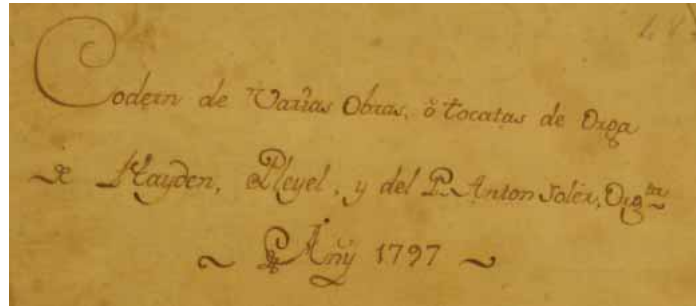 Codern de Varias Obras, ò tocatas de Orga
de Hayden, Pleyel, y del P. Anton Soler, Orgta
Añy 1797